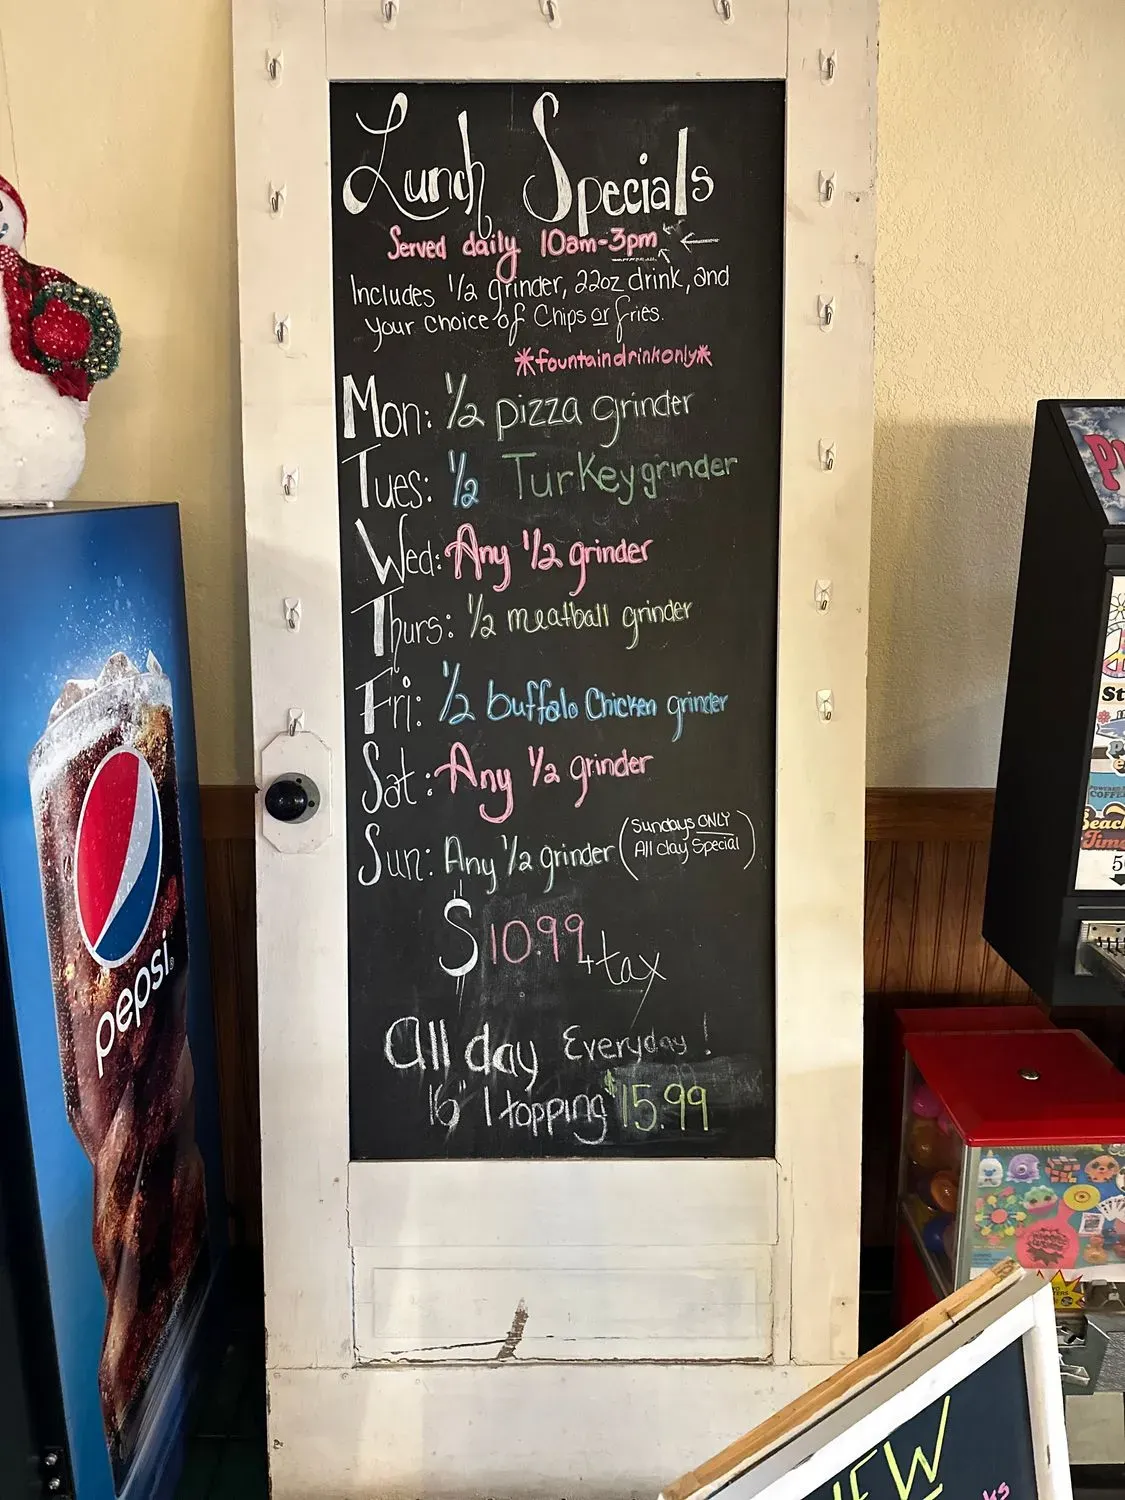 Lunch Specials
Served daily 10am-3pm
Includes 1/2 grinder, 22oz drink, and
your choice of Chips or fries.
*fountain drink only*
Mon: 1/2 pizza grinder
Tues: 1/2 Turkey grinder
Wed: Any 1/2 grinder
Thurs: 1/2 meatball grinder
Fri: 1/2 buffalo Chicken grinder
Sat: Any 1/2 grinder
Sun: Any 1/2 grinder (Sundays ONLY
All day Special)
$10.99 + tax
All day Everyday!
16" 1 topping $15.99
pepsi
NEW